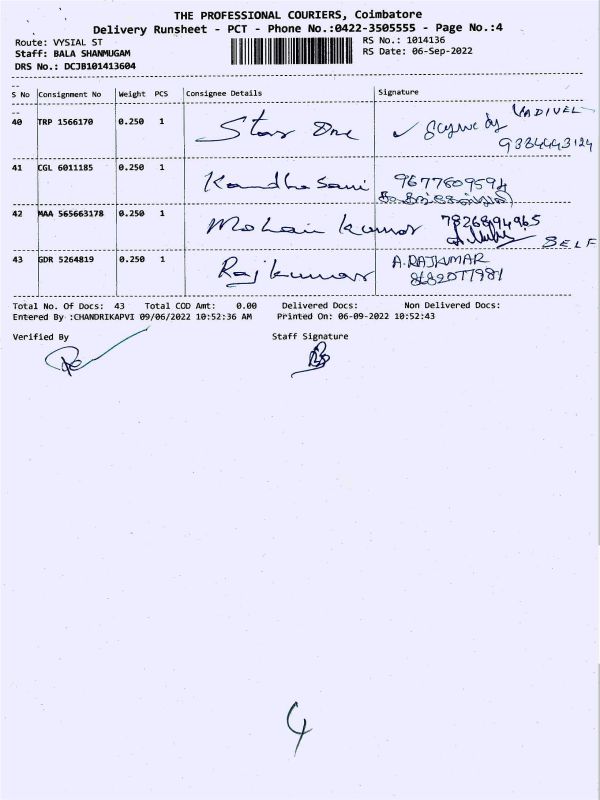 THE PROFESSIONAL COURIERS, Coimbatore
Delivery Runsheet - PCT - Phone No.:0422-3505555 - Page No.:4
Route: VYSIAL ST
RS No.: 1014136
Staff: BALA SHANMUGAM
RS Date: 06-Sep-2022
DRS No.: DCJB101413604
S No Consignment No Weight PCS Consignee Details Signature
40 TRP 1566170 0.250 1 Star One VADIVEL
9384443124
41 CGL 6011185 0.250 1 Kandhasami 9677609594
42 MAA 565663178 0.250 1 Mohan kumar 7826894965
SELF
43 GDR 5264819 0.250 1 Rajkumar A.RAJKUMAR
Total No. Of Docs: 43 Total COD Amt: 0.00 Delivered Docs: Non Delivered Docs:
Entered By :CHANDRIKAPVI 09/06/2022 10:52:36 AM Printed On: 06-09-2022 10:52:43
Verified By Staff Signature
4